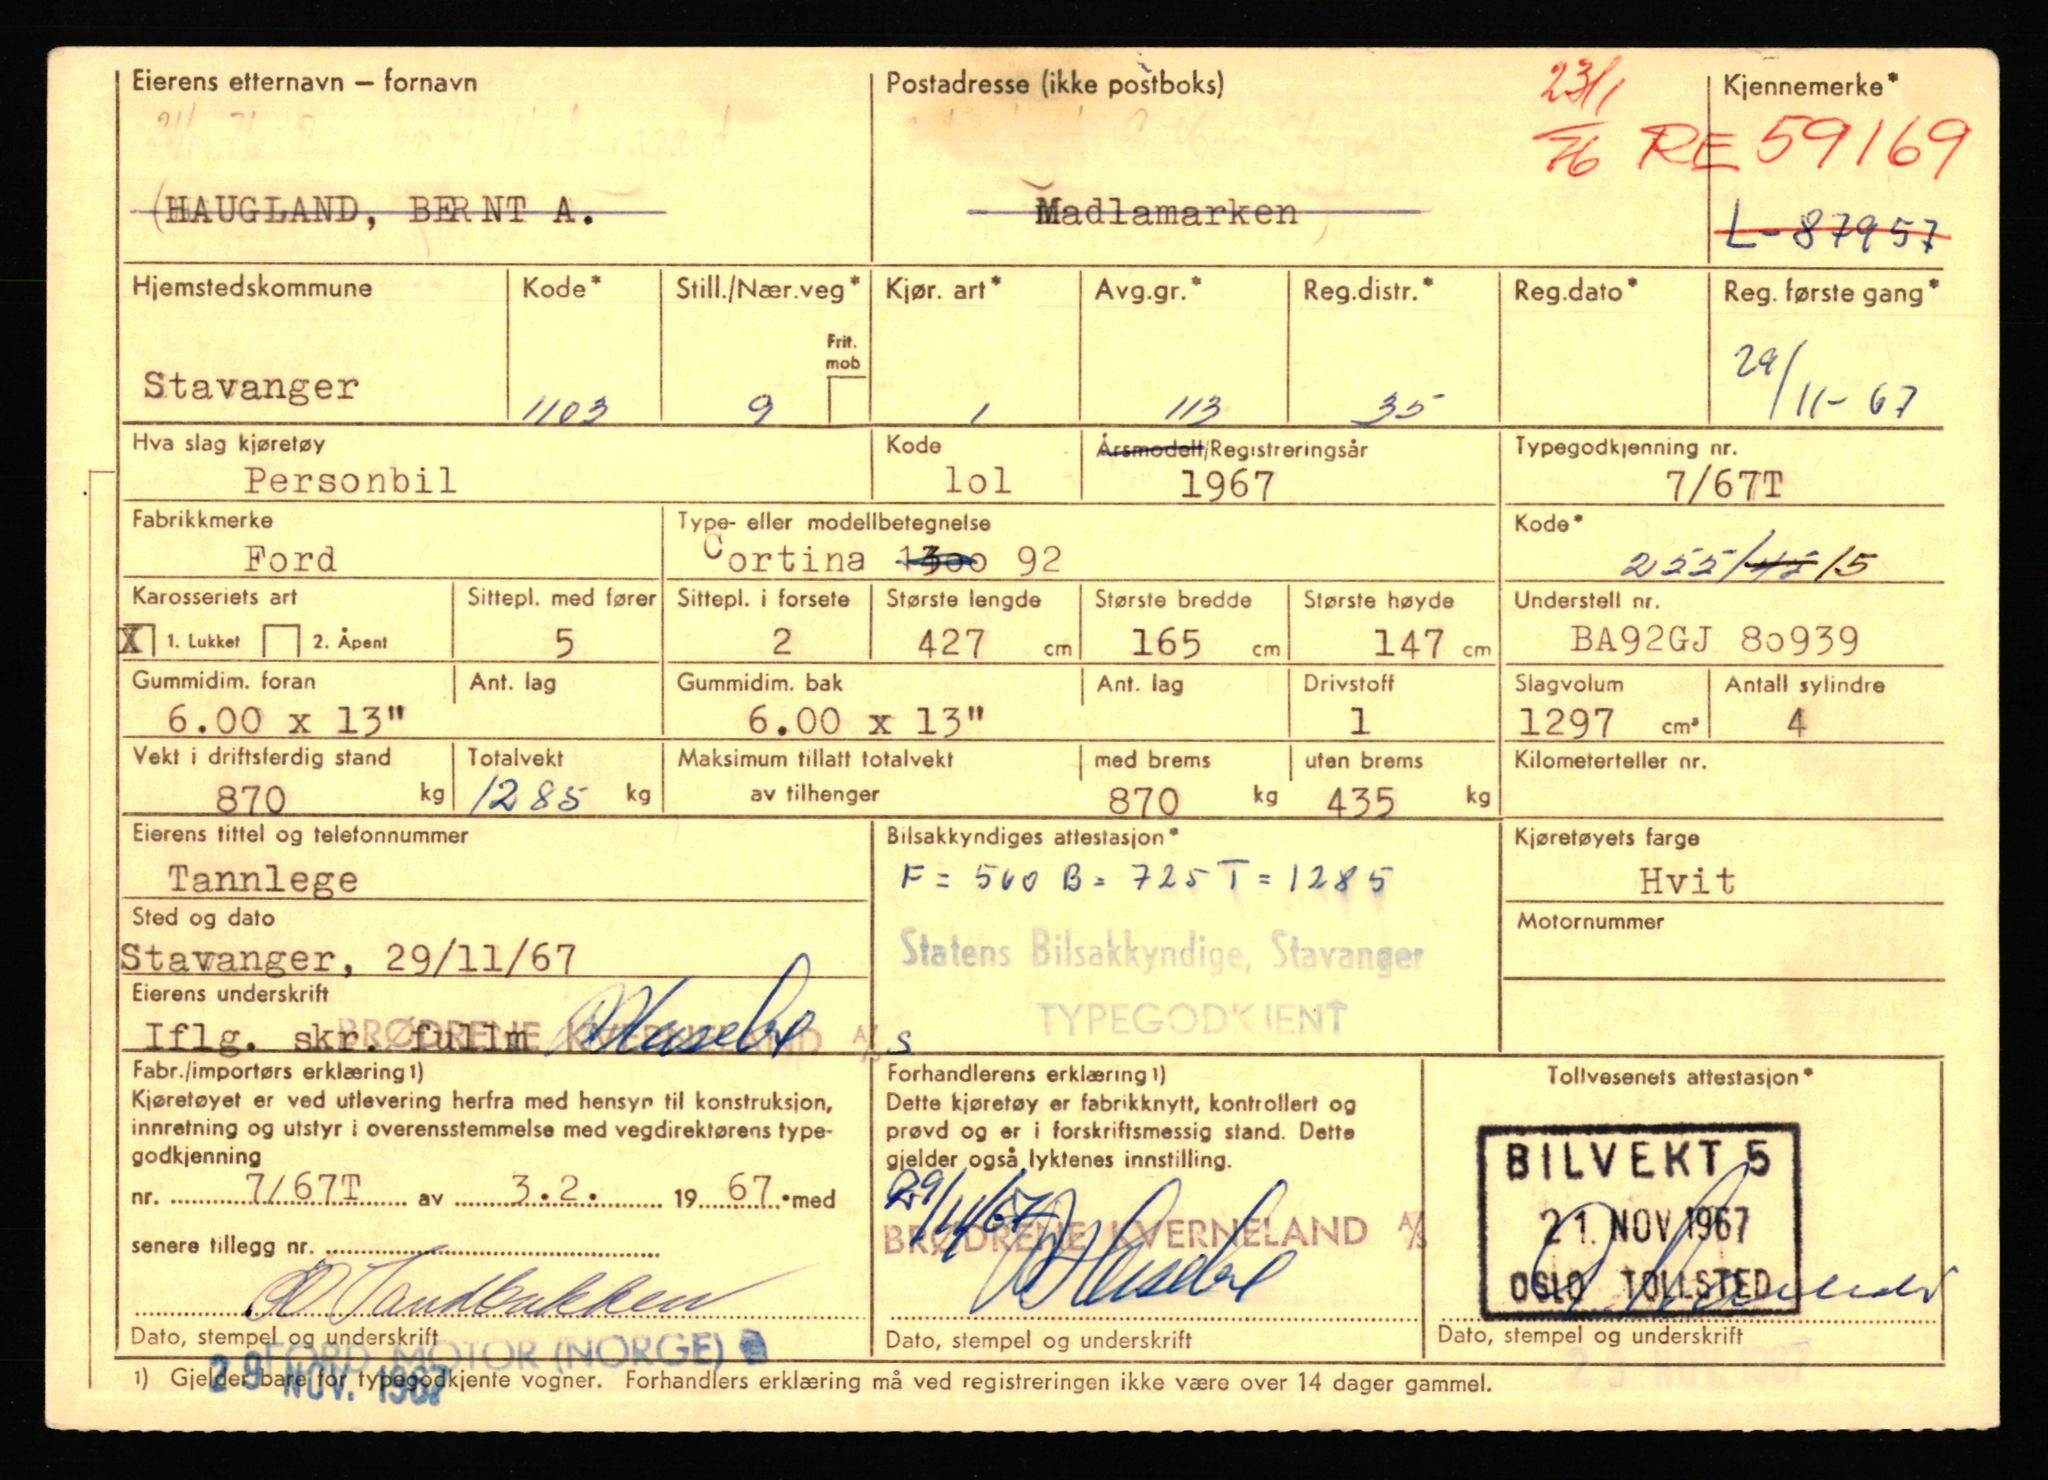 Eierens etternavn – fornavn
Postadresse (ikke postboks)
23/1
76
Kjennemerke*
RE 59169
(HAUGLAND, BERNT A.
Madlamarken
L-87957
Hjemstedskommune
Kode*
Still./Nær.veg*
Kjør. art*
Avg.gr.*
Reg.distr.*
Reg.dato*
Reg. første gang*
Frit.
mob
Stavanger
1103
9
1
113
35
29/11-67
Hva slag kjøretøy
Kode
Årsmodell/Registreringsår
Typegodkjenning nr.
Personbil
lol
1967
7/67T
Fabrikkmerke
Type- eller modellbetegnelse
Kode*
Ford
Cortina 1300 92
255/42/5
Karosseriets art
Sittepl. med fører
Sittepl. i forsete
Største lengde
Største bredde
Største høyde
Understell nr.
X 1. Lukket
2. Åpent
5
2
427 cm
165 cm
147 cm
BA92GJ 80939
Gummidim. foran
Ant. lag
Gummidim. bak
Ant. lag
Drivstoff
Slagvolum
Antall sylindre
6.00 x 13"
6.00 x 13"
1
1297 cm³
4
Vekt i driftsferdig stand
Totalvekt
Maksimum tillatt totalvekt
med brems
uten brems
Kilometerteller nr.
870 kg
1285 kg
av tilhenger
870 kg
435 kg
Eierens tittel og telefonnummer
Bilsakkyndiges attestasjon*
Kjøretøyets farge
Tannlege
F = 560 B = 725 T = 1285
Hvit
Sted og dato
Motornummer
Stavanger, 29/11/67
Statens Bilsakkyndige, Stavanger
Eierens underskrift
TYPEGODKJENT
Iflg. skr. fullm
BRØDRENE KVERNELAND A/S
Fabr./importørs erklæring 1)
Kjøretøyet er ved utlevering herfra med hensyn til konstruksjon,
innretning og utstyr i overensstemmelse med vegdirektørens type-
godkjenning
nr. 7/67T av 3.2. 1967. med
senere tillegg nr.
Dato, stempel og underskrift
FORD MOTOR (NORGE)
29 NOV. 1967
Forhandlerens erklæring 1)
Dette kjøretøy er fabrikknytt, kontrollert og
prøvd og er i forskriftsmessig stand. Dette
gjelder også lyktenes innstilling.
29/11/67
BRØDRENE KVERNELAND A/S
Dato, stempel og underskrift
Tollvesenets attestasjon*
BILVEKT 5
21. NOV 1967
OSLO TOLLSTED
Dato, stempel og underskrift
1) Gjelder bare for typegodkjente vogner. Forhandlers erklæring må ved registreringen ikke være over 14 dager gammel.